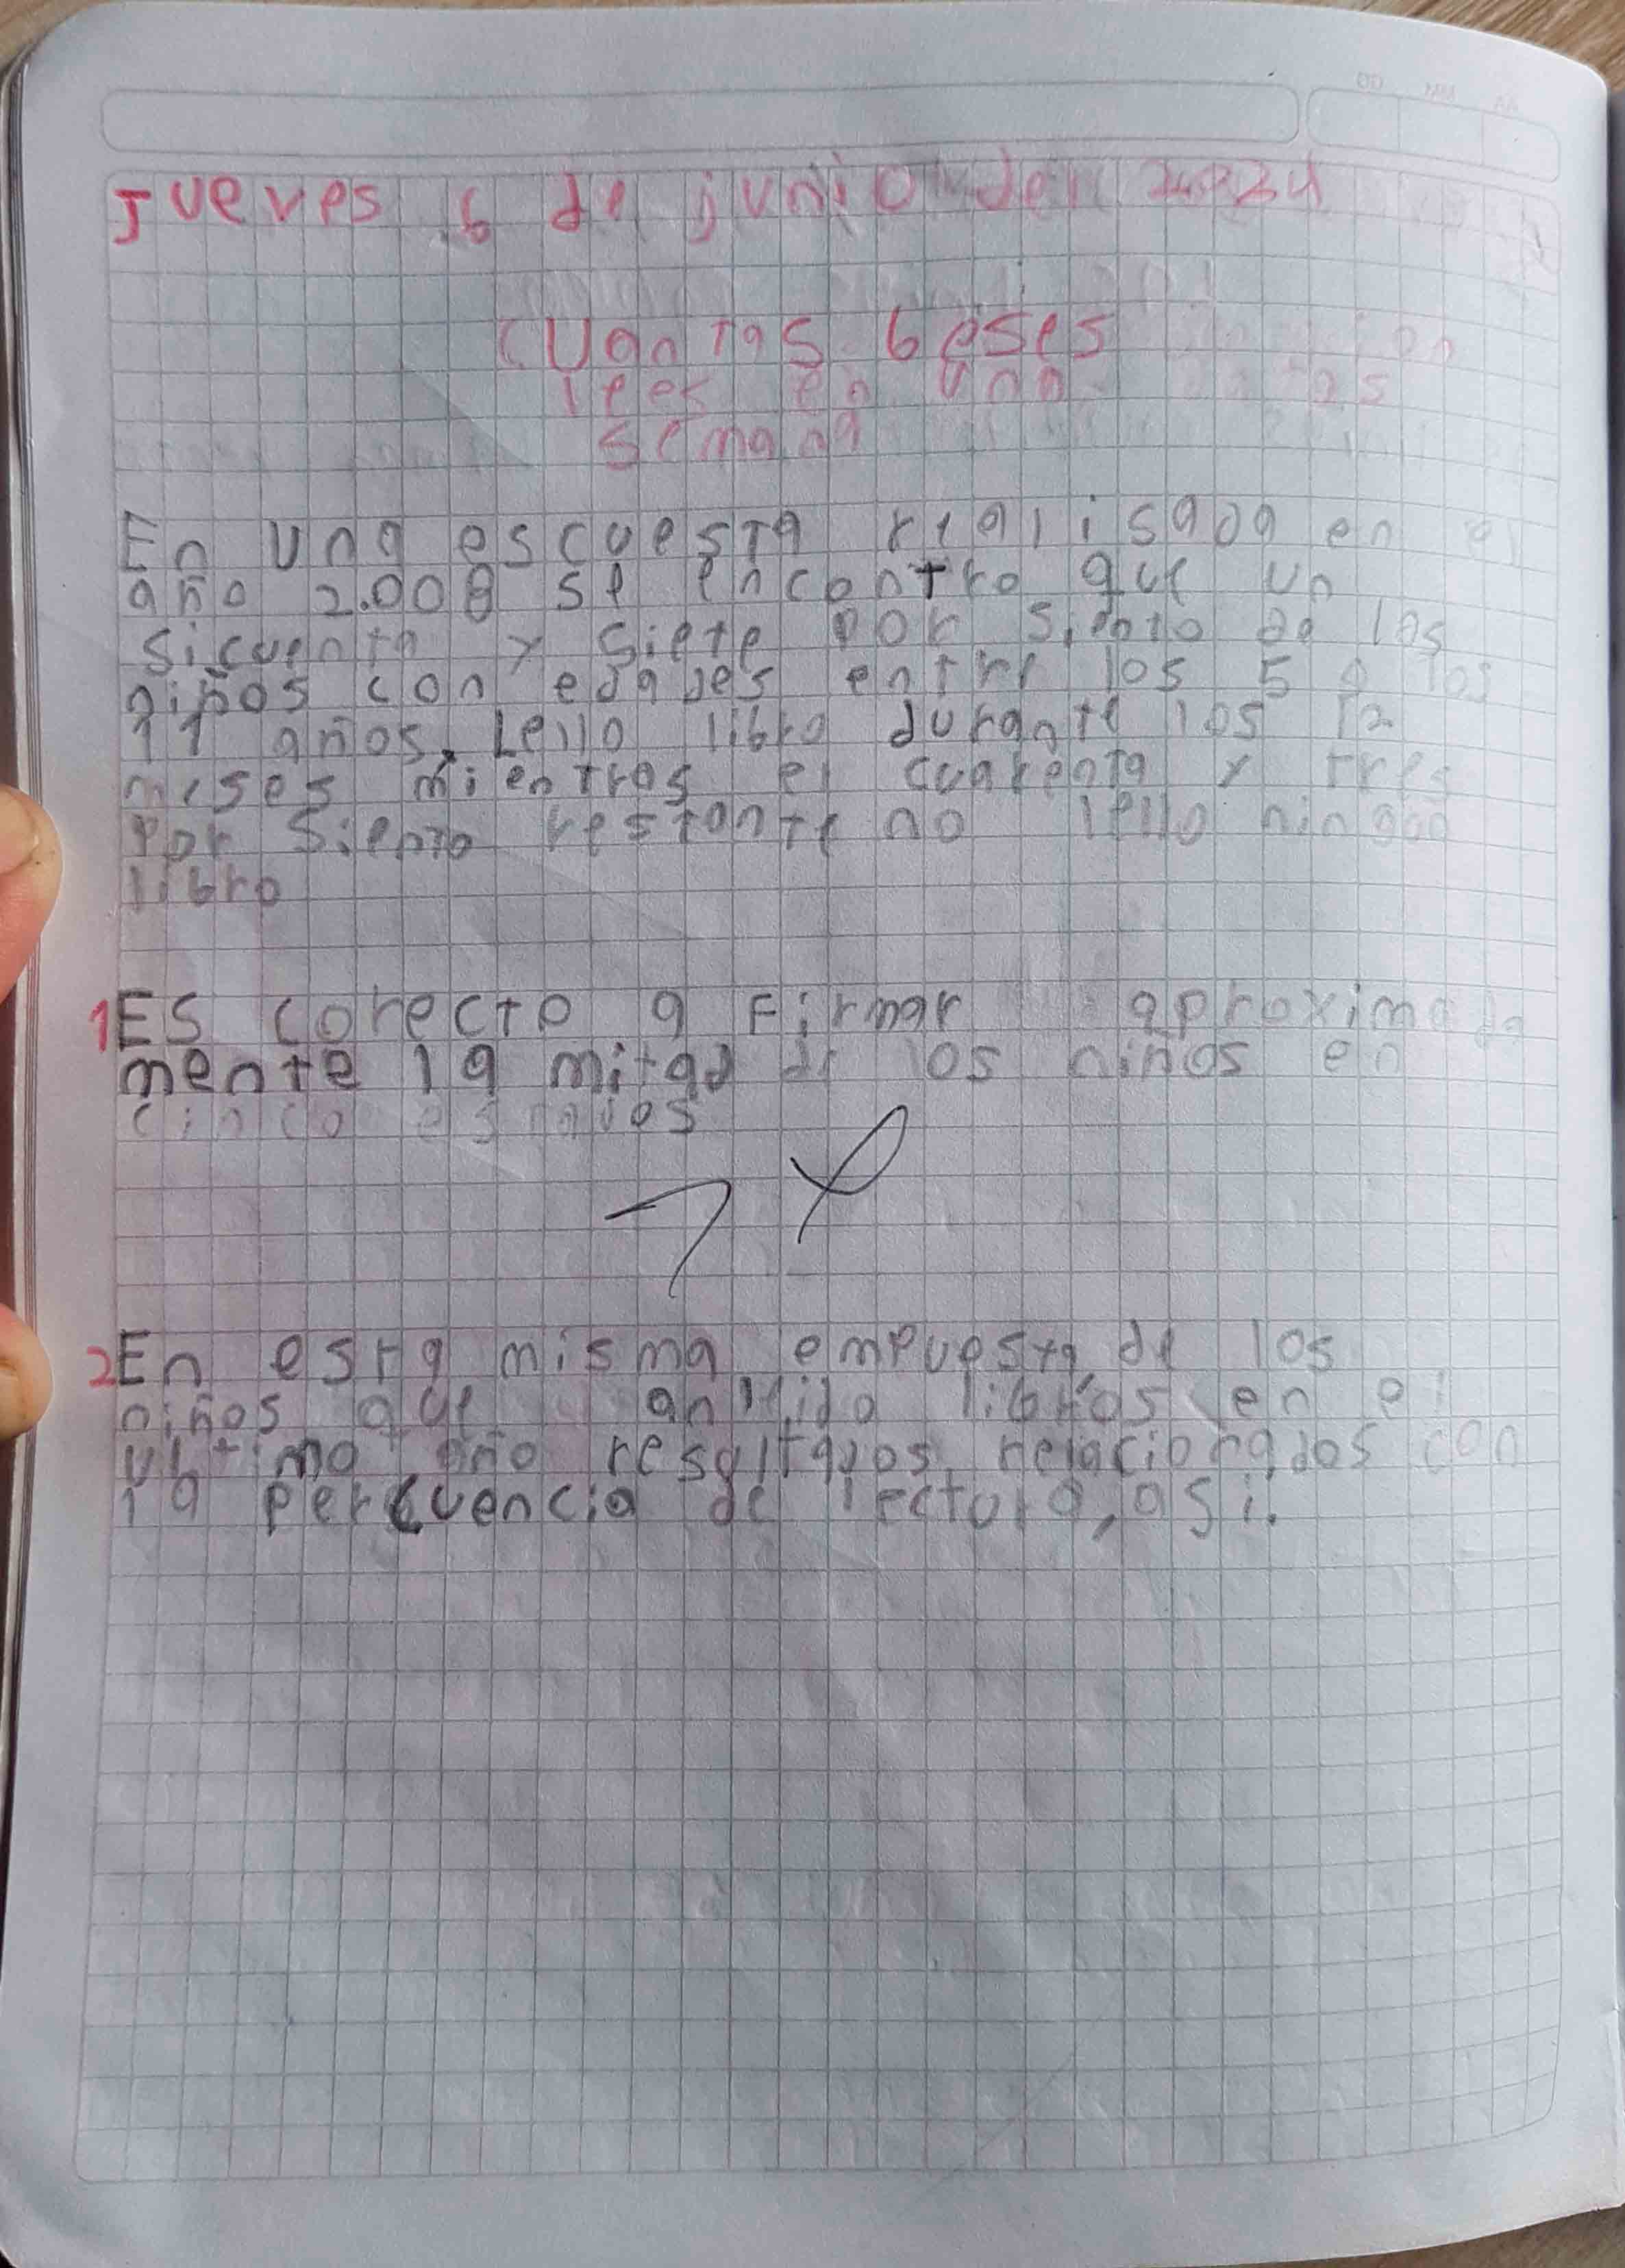 Jueves 6 de junio del 2024
cuantas beses
lees en una
semana
En una escuesta realisada en el
año 2.008 se encontro que un
sicuenta y siete por siento de los
niños con edades entre los 5 a los
11 años. Lello libro durante los 12
meses mientras el cuarenta y tres
por siento restante no lello ningun
libro
1 Es corecto a Firmar aproximada
mente la mitad de los niños en
cinco estados
2 En esta misma empuesta, de los
niños que an leido libros en el
ultimo año resultados relacionados con
la percuencia de lectura, asi.